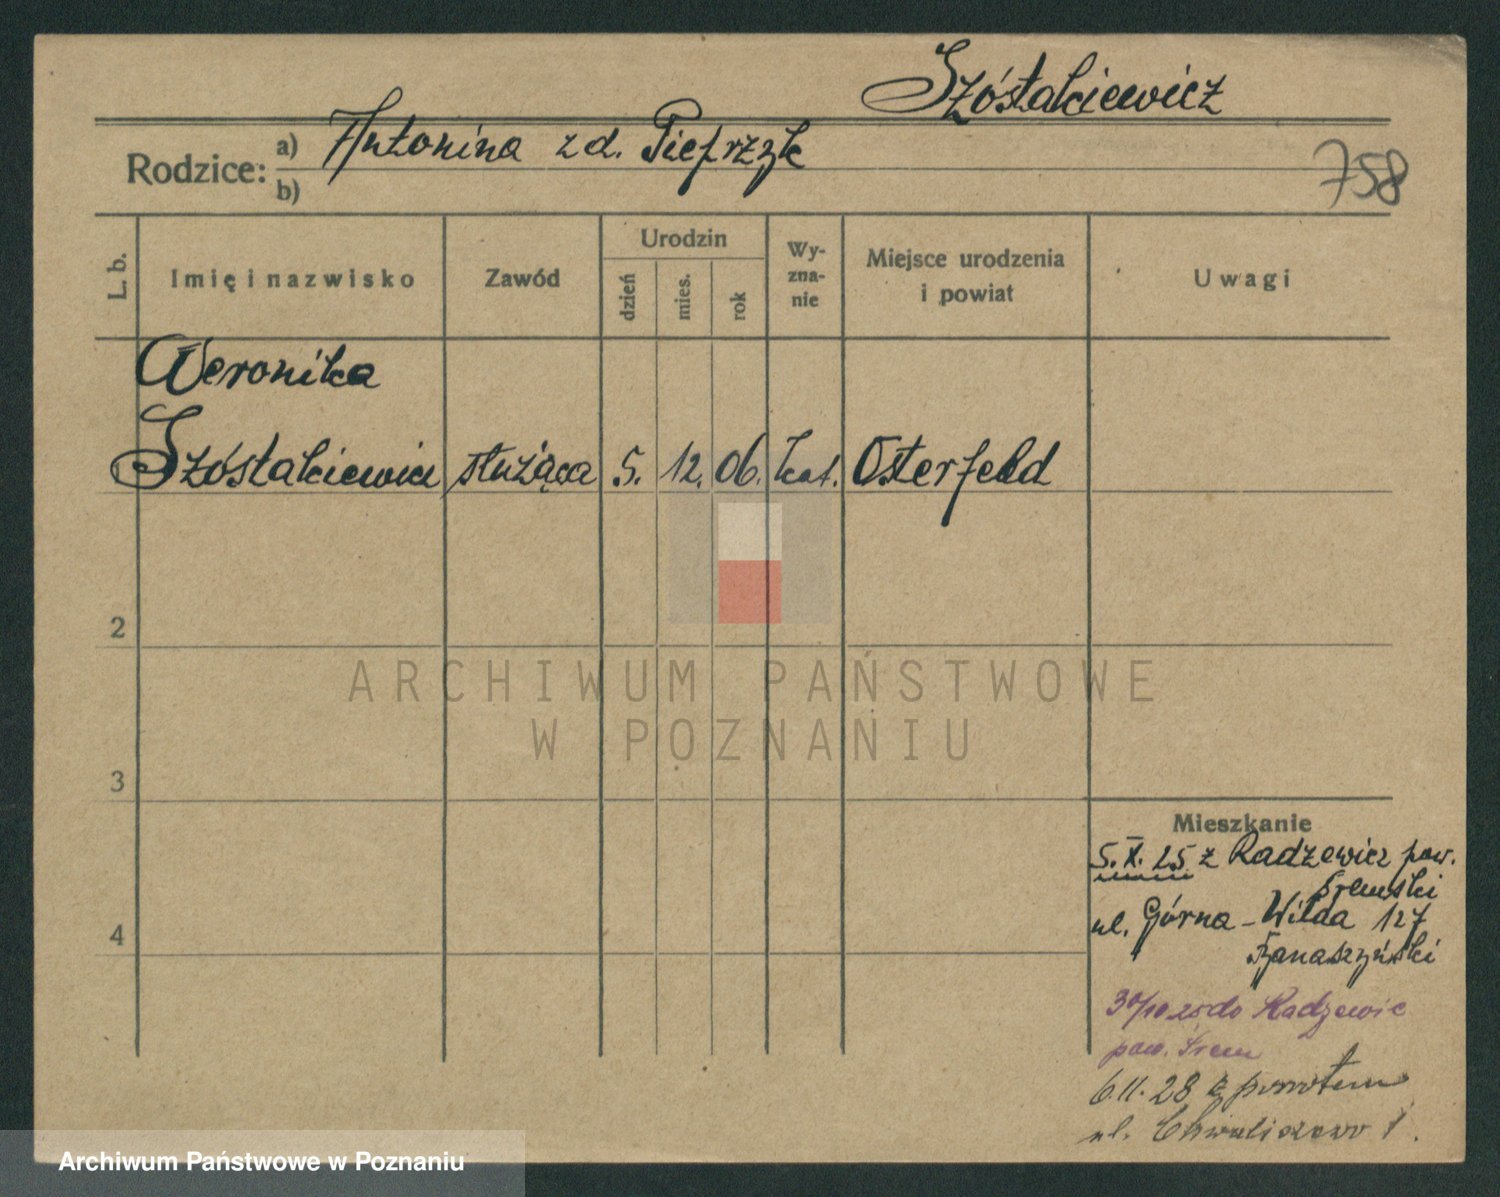 Szóstakiewicz
Rodzice: a) Antonina zd. Pieprzyk
b)
758
L. b.
Imię i nazwisko
Zawód
Urodzin
dzień
mies.
rok
Wy-
zna-
nie
Miejsce urodzenia
i powiat
Uwagi
Weronika
Szóstakiewicz służąca 5. 12. 06. kat. Osterfeld
2
3
4
ARCHIWUM PAŃSTWOWE
W POZNANIU
Mieszkanie
5. X. 25 z Radzewicz pow.
Śremski
ul. Górna-Wilda 127
30/10 25 do Radzewic
pow. Śrem
6.11.28 z powrotem
ul. Chwaliszewo 1.
Archiwum Państwowe w Poznaniu